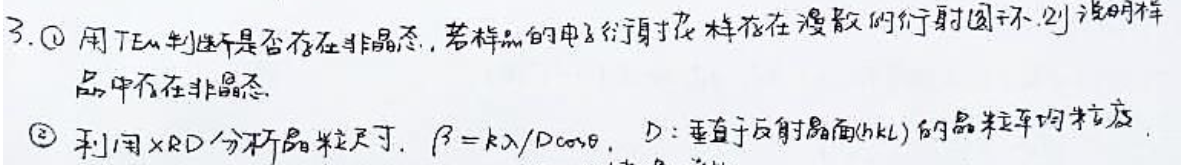 3.① 用TEM判断是否存在非晶态,若样品的电子衍射花样存在漫散的衍射圆环,则说明样
品中存在非晶态.
② 利用XRD分析晶粒尺寸. β=kλ/Dcosθ, D:垂直于反射晶面(hkl)的晶粒平均粒度.